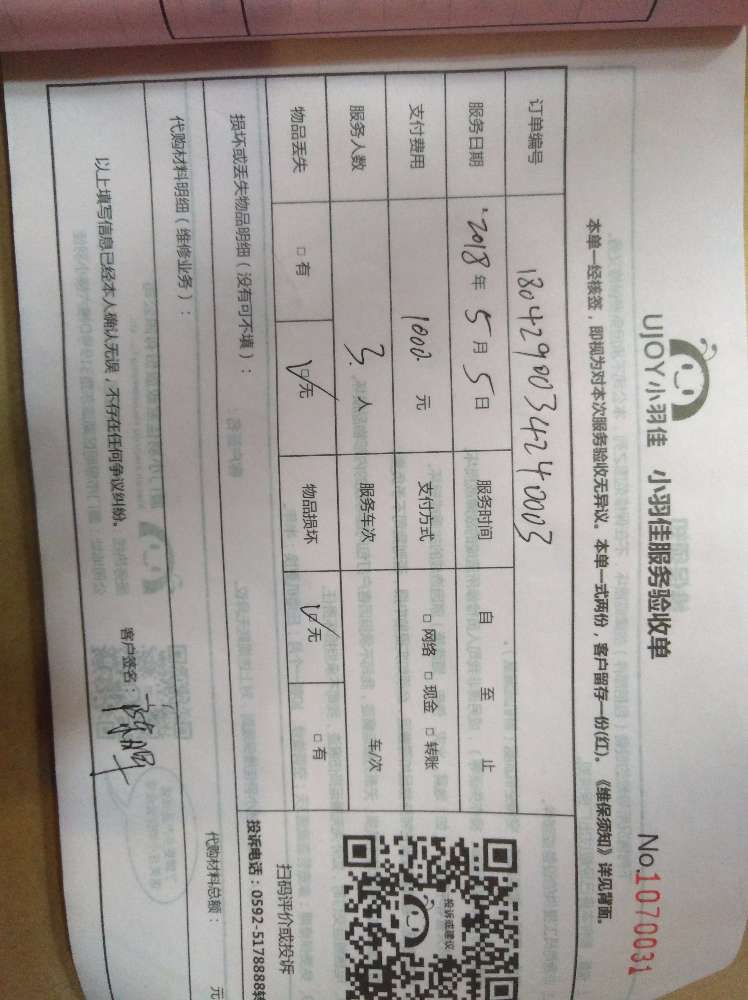 UJOY小羽佳 小羽佳服务验收单 No.1070031
本单一经核签，即视为对本次服务验收无异议。本单一式两份，客户留存一份(红)。《维保须知》详见背面。
订单编号 1804290034240003
服务日期 2018年5月5日 服务时间 自 至 止
支付费用 1000 元 支付方式 □网络 □现金 □转账
服务人数 3 人 服务车次 车/次
物品丢失 □有 ☑无 物品损坏 ☑无 □有
投诉或建议
扫码评价或投诉
投诉电话：0592-5178888转
损坏或丢失物品明细（没有可不填）：
代购材料明细（维修业务）：
代购材料总额： 元
以上填写信息已经本人确认无误，不存在任何争议纠纷。 客户签名：